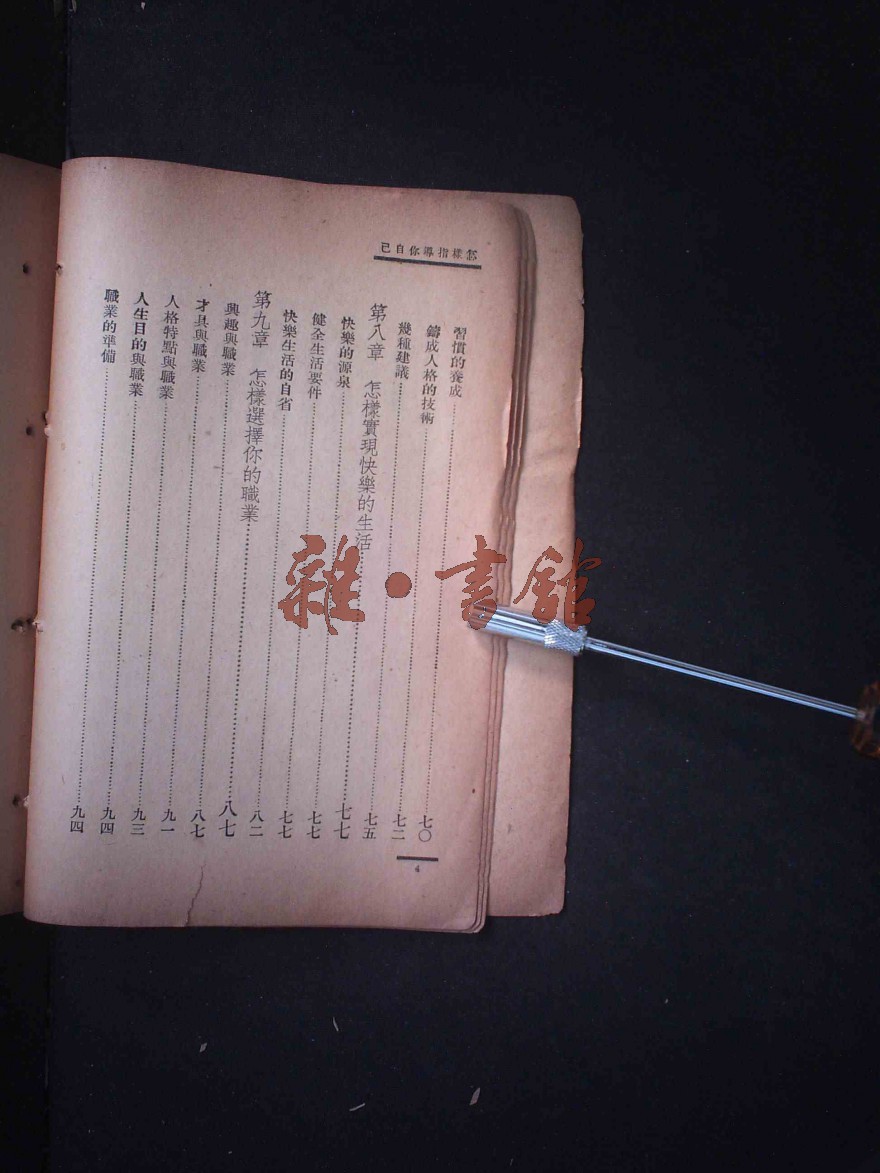 怎樣指導你自己
習慣的養成……七〇
鑄成人格的技術……七二
幾種建議……七五
第八章　怎樣實現快樂的生活……七七
快樂的源泉……七七
健全生活要件……七七
快樂生活的自省……八二
第九章　怎樣選擇你的職業……八七
興趣與職業……八七
才具與職業……九一
人格特點與職業……九三
人生目的與職業……九四
職業的準備……九四
4
雜•書館